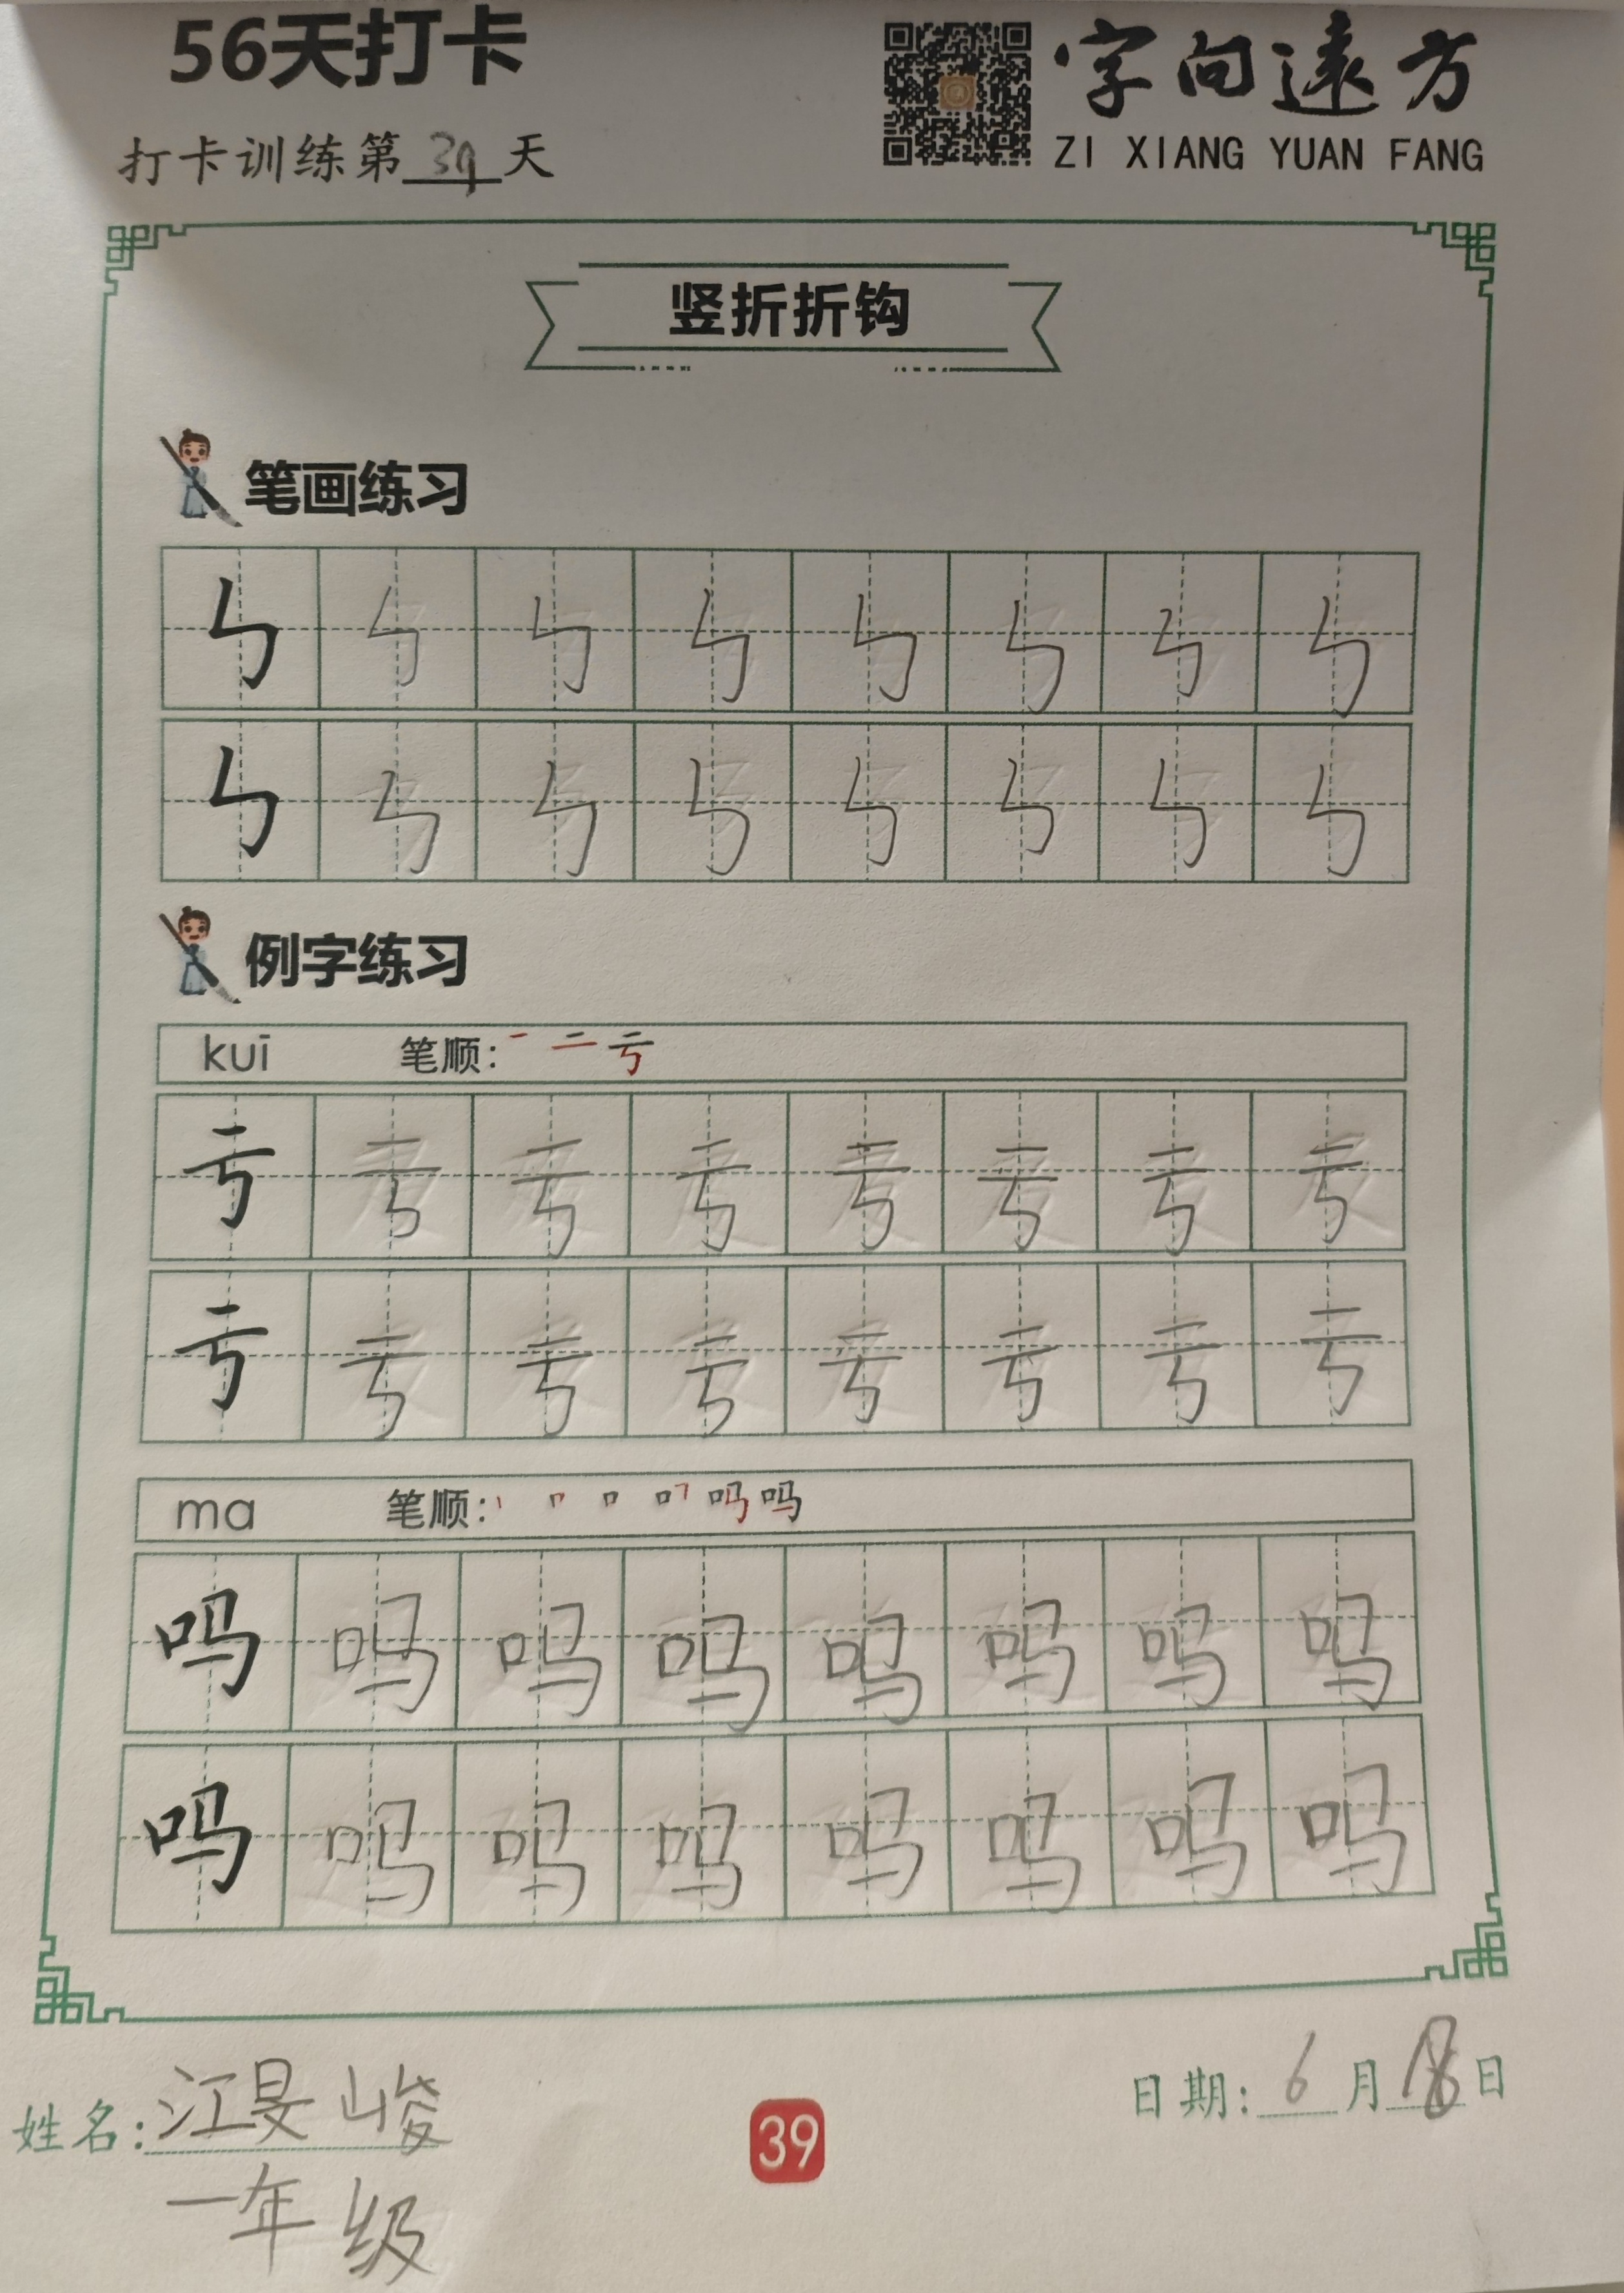 56天打卡
字向遠方
ZI XIANG YUAN FANG
打卡训练第39天
竖折折钩
笔画练习
ㄣ ㄣ ㄣ ㄣ ㄣ ㄣ ㄣ ㄣ
ㄣ ㄣ ㄣ ㄣ ㄣ ㄣ ㄣ ㄣ
例字练习
kuī 笔顺: 一 二 亏
亏 亏 亏 亏 亏 亏 亏 亏
亏 亏 亏 亏 亏 亏 亏 亏
ma 笔顺:
吗 吗 吗 吗 吗 吗 吗 吗
吗 吗 吗 吗 吗 吗 吗 吗
姓名: 江旻峻
一年级
39
日期: 6月18日